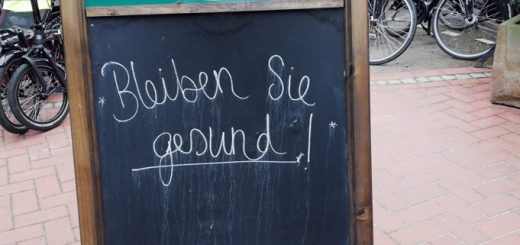 *Bleiben Sie
gesund!*